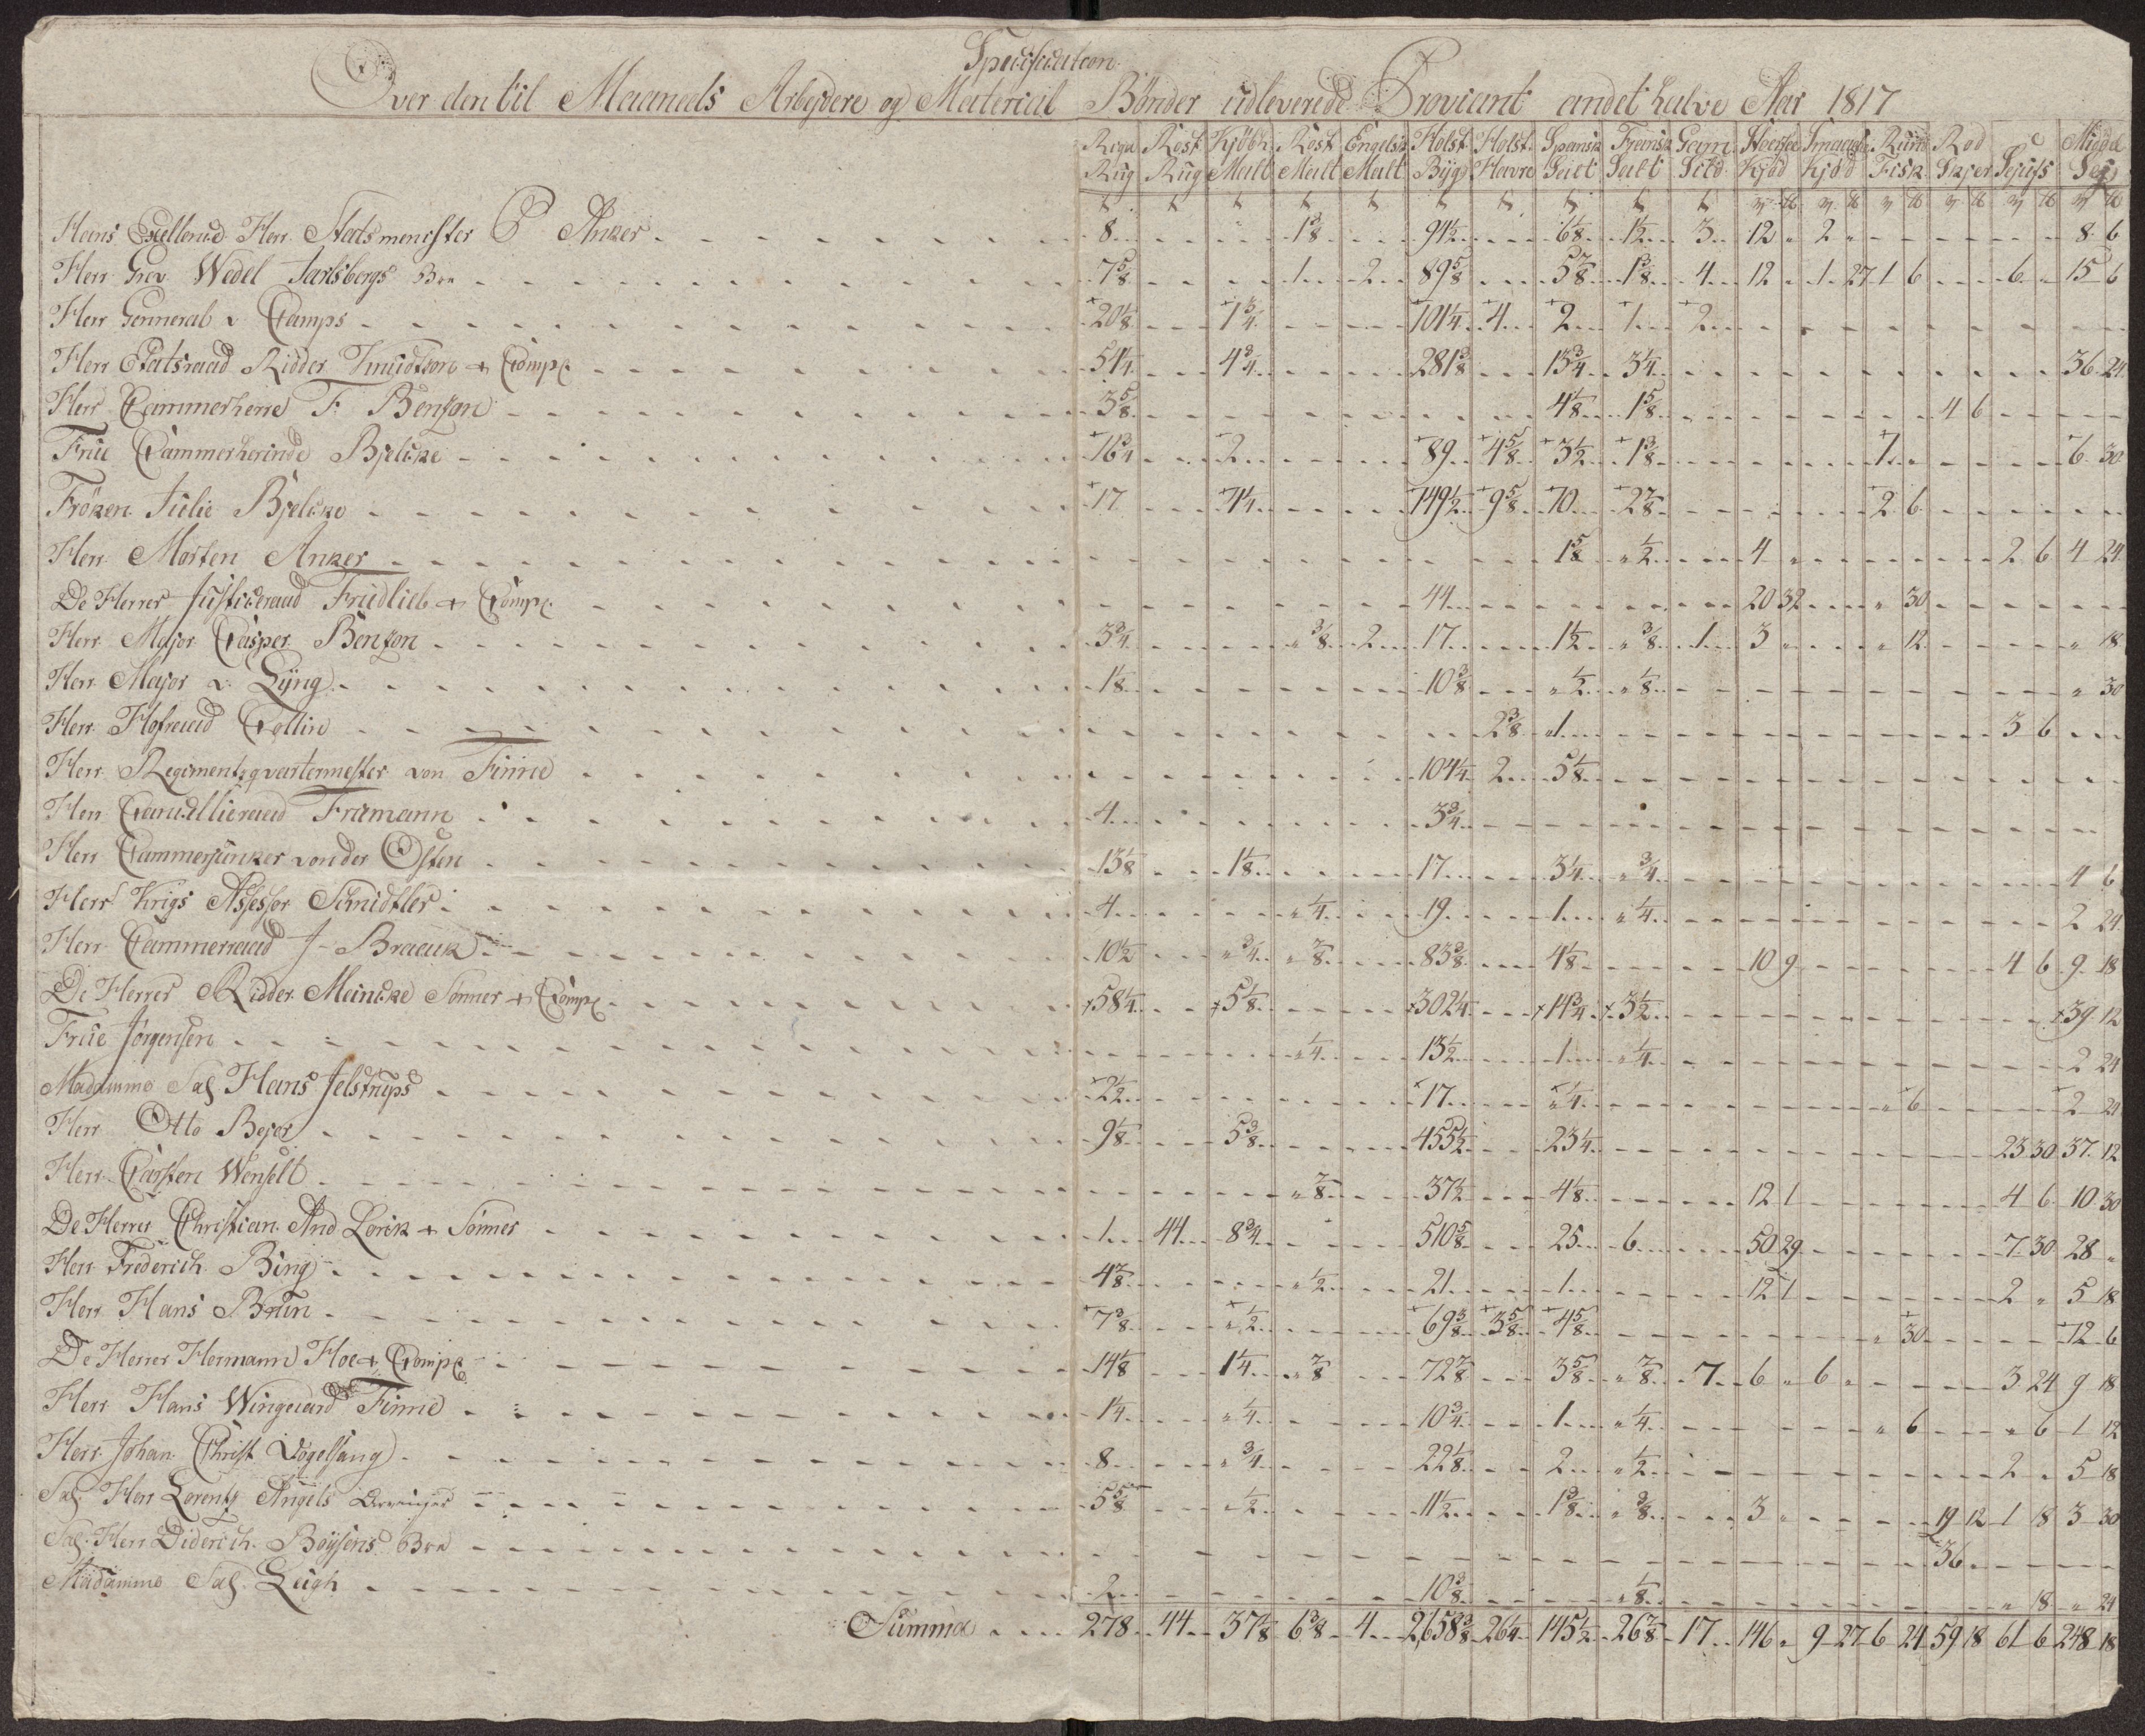 Specification
Over den til Maaneds Arbejdere og Material Bønder udleverede Proviant andet halve Aar 1817
Riga Rug Rost Rug Kjöbh Malt Rost Malt Engelsk Malt Holst. Bÿg Holst. Havre Spansk Salt Fransk Salt Gem Sild Stoerfee Kjød Smaafee Kjød Rund Fisk Rod Skjer Sejufs Middel Sej
Hans Exellence Herr Statsmenister P Anker 8 1 3/8 94 1/2 6 1/8 1 1/2 3 12 " 2 " 8 6
Herr Grev Wedel Jarlsbergs Bro 7 5/8 1 2 89 5/8 5 7/8 1 3/8 4 12 " 1 27 1 6 6 " 15 6
Herr Genneral v Camps +20 1/8 +1 3/4 +101 1/4 +4 +2 +1 +2
Herr Etatsraad Ridder Knudtzon & Comp 54 1/4 4 3/4 281 3/8 13 3/4 3 1/4 36 24
Herr Cammerherre F. Benzon 3 5/8 4 1/8 1 5/8 4 6
Frue Cammerherinde Bjelcke +16 3/4 +2 +89 +4 5/8 +3 1/2 +1 3/8 +1 " +6 30
Frøken Julie Bjelcke +17 +4 1/4 +149 1/2 +9 5/8 +10 +2 7/8 +2 6
Herr Morten Anker 1 5/8 " 1/2 4 " 2 6 4 24
De Herrer Justiceraad Friedlieb & Comp 44 20 32 " 30
Herr Major Casper Benzon 3 3/4 " 3/8 2 17 1 1/2 " 3/8 1 3 " " 12 " 18
Herr Major v. Lÿng 1 1/8 10 3/8 " 1/2 " 1/8 " 30
Herr Hofraad Collin 2 3/8 1 3 6
Herr Regimentzqvartermester von Finne 104 1/4 2 5 1/8
Herr Cancelliraad Framann 4 3 3/4
Herr Cammerjunker von der Osten 13 1/8 1 1/8 17 3 1/4 " 3/4 4 6
Herr Krigs Assessor Schnidtler 4 " 1/4 19 1 " 1/4 2 24
Herr Cammerraad J. Braack 10 1/2 " 3/4 " 7/8 83 3/8 4 1/8 10 9 4 6 9 18
De Herrer Ridder Meincke Sønner & Comp +58 1/4 +5 1/8 +302 1/4 +14 3/4 +3 1/2 +39 12
Frue Jørgensen " 1/4 13 1/2 1 " 1/4 2 24
Madamme Sal Hans Jelstrups +2 1/2 +17 + " 1/4 + " 6 +2 24
Herr Otto Bejer 9 1/8 5 3/8 455 1/2 23 1/4 23 30 37 12
Herr Carsten Wenselt " 7/8 37 1/2 4 1/8 12 1 4 6 10 30
De Herrer Christian And Lorck & Sønner 1 44 8 3/4 510 5/8 25 6 50 29 7 30 28 "
Herr Frederich Bing 4 7/8 " 1/2 21 1 12 1 2 " 5 18
Herr Hans Brun +7 3/8 + " 1/2 +69 3/8 +3 5/8 +4 5/8 + " 30 +12 6
De Herrer Hermann Hoe & Comp 14 1/8 1 1/4 " 7/8 72 7/8 3 5/8 " 7/8 7 6 " 6 " 3 24 9 18
Herr Hans Wingaard Finne 1 1/4 " 1/4 10 3/4 1 " 1/4 " 6 " 6 1 12
Herr Johan Christ Vogelsang 8 " 3/4 22 1/8 2 " 1/2 2 " 5 18
Sal. Herr Lorentz Angels Arvinger 5 5/8 " 1/2 11 1/2 1 3/8 " 3/8 3 " 19 12 1 18 3 30
Sal. Herr Diderich Boÿsens Bro 36
Madamme Sal. Leigh 2 10 3/8 " 1/8 " 18 " 24
Summa 278 44 37 1/8 6 3/8 4 2,658 3/8 26 1/4 145 1/2 26 7/8 17 146 " 9 27 6 24 59 18 61 6 248 18